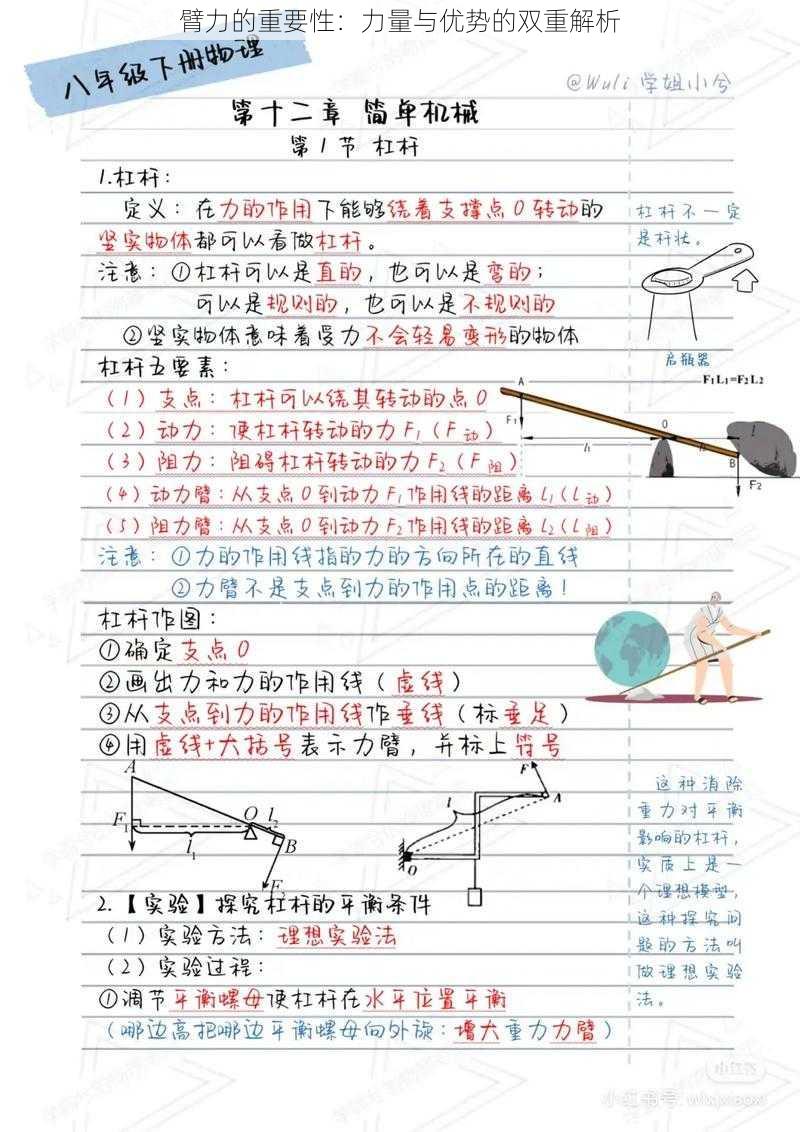 臂力的重要性：力量与优势的双重解析
八年级下册物理
@Wuli 学姐小兮
第十二章 简单机械
第1节 杠杆
1.杠杆：
定义：在力的作用下能够绕着支撑点O转动的
坚实物体都可以看做杠杆。
注意：①杠杆可以是直的，也可以是弯的；
可以是规则的，也可以是不规则的
②坚实物体意味着受力不会轻易变形的物体
杠杆不一定
是杆状。
启瓶器
杠杆五要素：
(1) 支点：杠杆可以绕其转动的点O
(2) 动力：使杠杆转动的力F₁（F动）
(3) 阻力：阻碍杠杆转动的力F₂（F阻）
(4) 动力臂：从支点O到动力F₁作用线的距离L₁(L动)
(5) 阻力臂：从支点O到动力F₂作用线的距离L₂(L阻)
F₁L₁=F₂L₂
A
F₁
O
l₁
l₂
B
F₂
注意：①力的作用线指的力的方向所在的直线
②力臂不是支点到力的作用点的距离！
杠杆作图：
①确定支点O
②画出力和力的作用线（虚线）
③从支点到力的作用线作垂线（标垂足）
④用虚线+大括号表示力臂，并标上符号
A
F₁
O
l₂
l₁
B
F₂
F
l
A
O
这种消除
重力对平衡
影响的杠杆，
实质上是一
个理想模型，
这种探究问
题的方法叫
做理想实验
法。
2.【实验】探究杠杆的平衡条件
(1) 实验方法：理想实验法
(2) 实验过程：
①调节平衡螺母使杠杆在水平位置平衡
(哪边高把哪边平衡螺母向外旋：增大重力力臂)
小红书
小红书号：